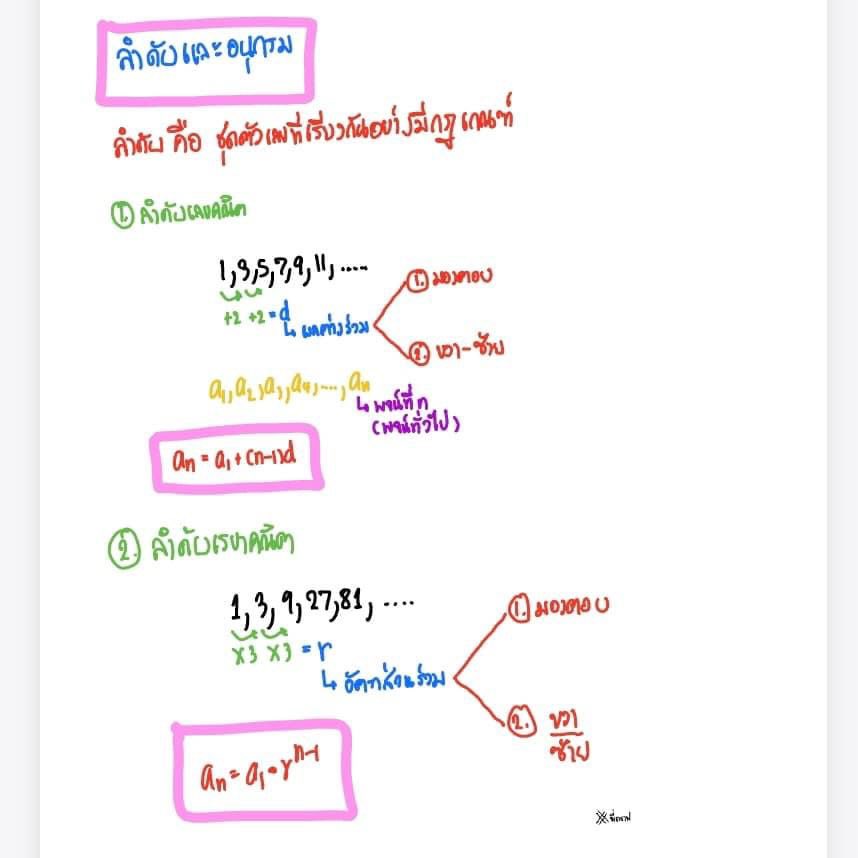 ลำดับและอนุกรม
ลำดับ คือ ชุดตัวเลขที่เรียงกันอย่างมีกฎเกณฑ์
1. ลำดับเลขคณิต
1, 3, 5, 7, 9, 11, .....
+2 +2 = d
↳ ผลต่างร่วม
1. มองตอบ
2. ขวา - ซ้าย
a₁, a₂, a₃, a₄, ..., aₙ
↳ พจน์ที่ n
(พจน์ทั่วไป)
aₙ = a₁ + (n-1)d
2. ลำดับเรขาคณิต
1, 3, 9, 27, 81, ....
×3 ×3 = r
↳ อัตราส่วนร่วม
1. มองตอบ
2. ขวา
ซ้าย
aₙ = a₁ • rⁿ⁻¹